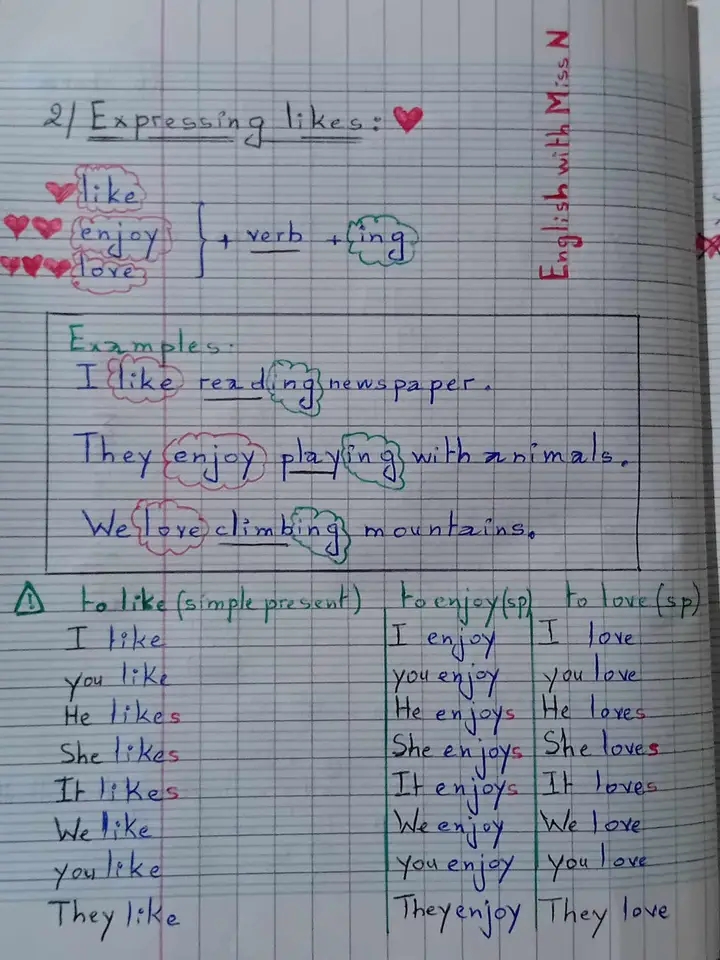 English with Miss N
2/ Expressing likes:
like
enjoy
love
+ verb + ing
Examples:
I like reading newspaper.
They enjoy playing with animals.
We love climbing mountains.
to like (simple present) to enjoy (sp) to love (sp)
I like I enjoy I love
you like you enjoy you love
He likes He enjoys He loves
She likes She enjoys She loves
It likes It enjoys It loves
We like We enjoy We love
you like you enjoy you love
They like They enjoy They love